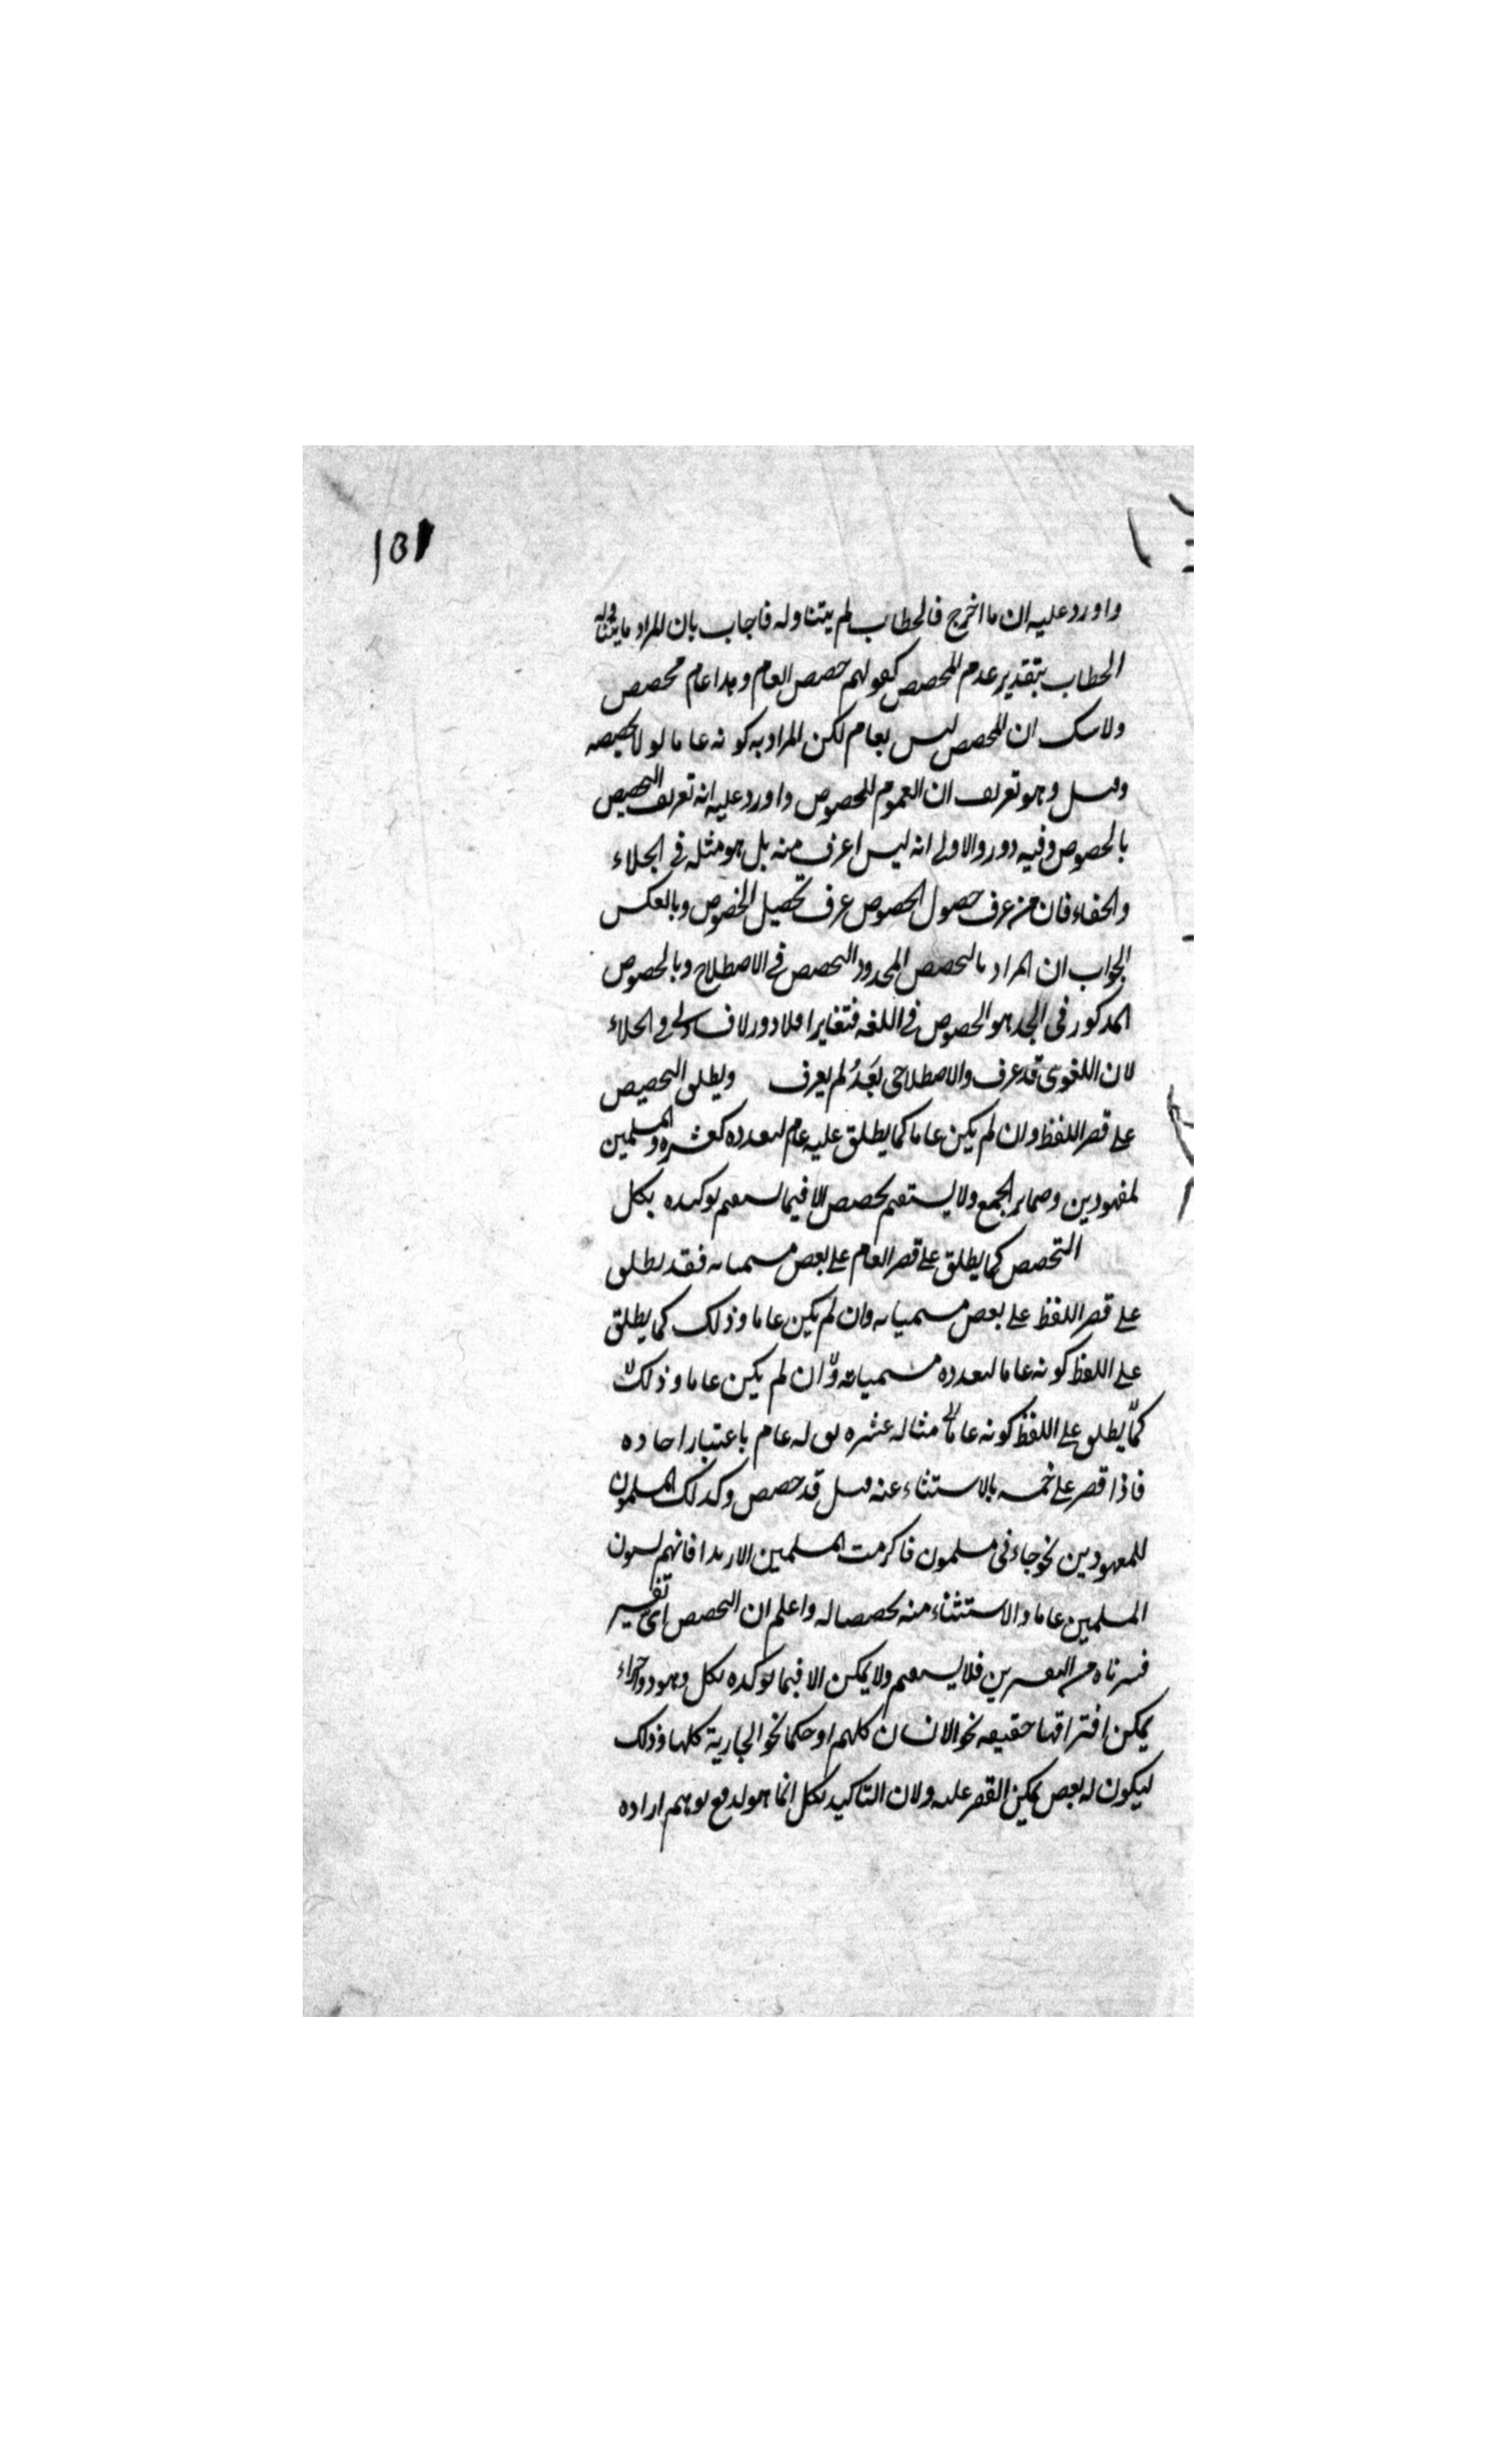 واورد عليه ان ما اخرج فالخطاب لم يتناوله فاجاب بان المراد ما يتناوله
الخطاب بتقدير عدم المخصص كقولهم خصص العام وهذا عام مخصص
ولا شك ان المخصص ليس بعام لكن المراد به كونه عاما لولا تخصيصه
وقيل وهو تعريف ان العموم للخصوص واورد عليه انه تعريف التخصيص
بالخصوص وفيه دور والاولى انه ليس اعرف منه بل هو مثله في الجلاء
والخفاء فان من عرف حصول الخصوص عرف تحصيل الخصوص وبالعكس
الجواب ان المراد بالتخصيص المحدود التخصيص في الاصطلاح وبالخصوص
المذكور في الحد هو الخصوص في اللغه فتغايرا فلا دور ولا في الجلاء
لان اللغوى قد عرف والاصطلاحى بَعْدُ لم يعرف ويطلق التخصيص
على قصر اللفظ وان لم يكن عاما كما يطلق عليه عام لتعدده كعشره والمسلمين
لمعهودين وضماير الجمع ولا يستقيم تخصيص الا فيما يستقيم توكيده بكل
التخصيص كما يطلق على قصر العام على بعض مسمياته فقد يطلق
على قصر اللفظ على بعض مسمياته وان لم يكن عاما وذلك كما يطلق
على اللفظ كونه عاما لتعدده مسمياته وان لم يكن عاما وذلك
كما يطلق على اللفظ كونه عاما مثاله عشره يق له عام باعتبار احاده
فاذا قصر على خمسه بالاستثناء عنه قيل قد خصص وكذلك المسلمون
للمعهودين نحو جاءنى مسلمون فاكرمت المسلمين الا زيدا فانهم يسمون
المسلمين عاما والاستثناء منه تخصيصا له واعلم ان التخصيص اى تفسير
فسرناه من التفسيرين فلا يستقيم ولا يمكن الا فيما توكيده بكل وهو ذو اجزاء
يمكن افتراقها حقيقه نحو الانسان كلهم او حكما نحو الجارية كلها وذلك
ليكون له بعض يمكن القصر عليه ولان التاكيد بكل انما هو لدفع توهم اراده